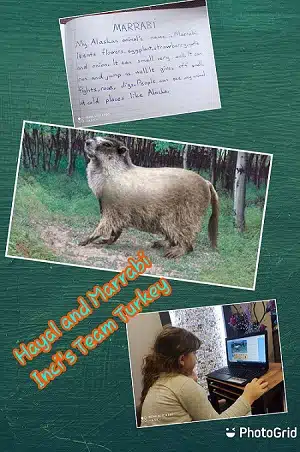 MARRABI
My Alaskan animal's name is Marrabi.
It eats flowers, eggplant, strawberry, goats
and onion. It can smell very well. It can
run and jump as well. It gives off
fights, runs, digs. People can see my animal
at cold places like Alaska.
Hayal and Marrabi
Inci's Team Turkey
PhotoGrid